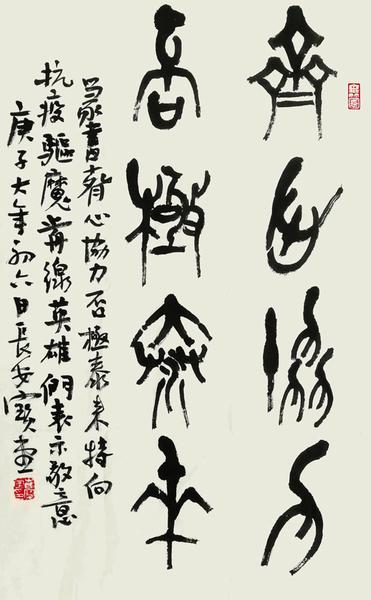 齊心協力
否極泰來
篆書齊心協力否極泰来特向
抗疫驅魔前線英雄們表示敬意
庚子大年初六日長安